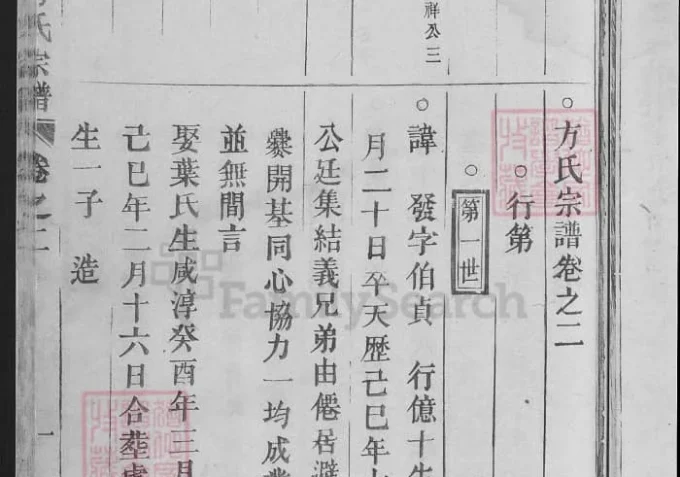 方氏宗譜卷之二
行第
第一世
諱 發字伯貞 行億十生
月二十日卒天歷己巳年
公廷集結義兄弟由僊居避
爨開基同心協力一均成業
並無間言
娶葉氏生咸淳癸酉年三月
己巳年二月十六日合塟處
生一子 造
祥公三
氏宗譜 卷之二
一
FamilySearch